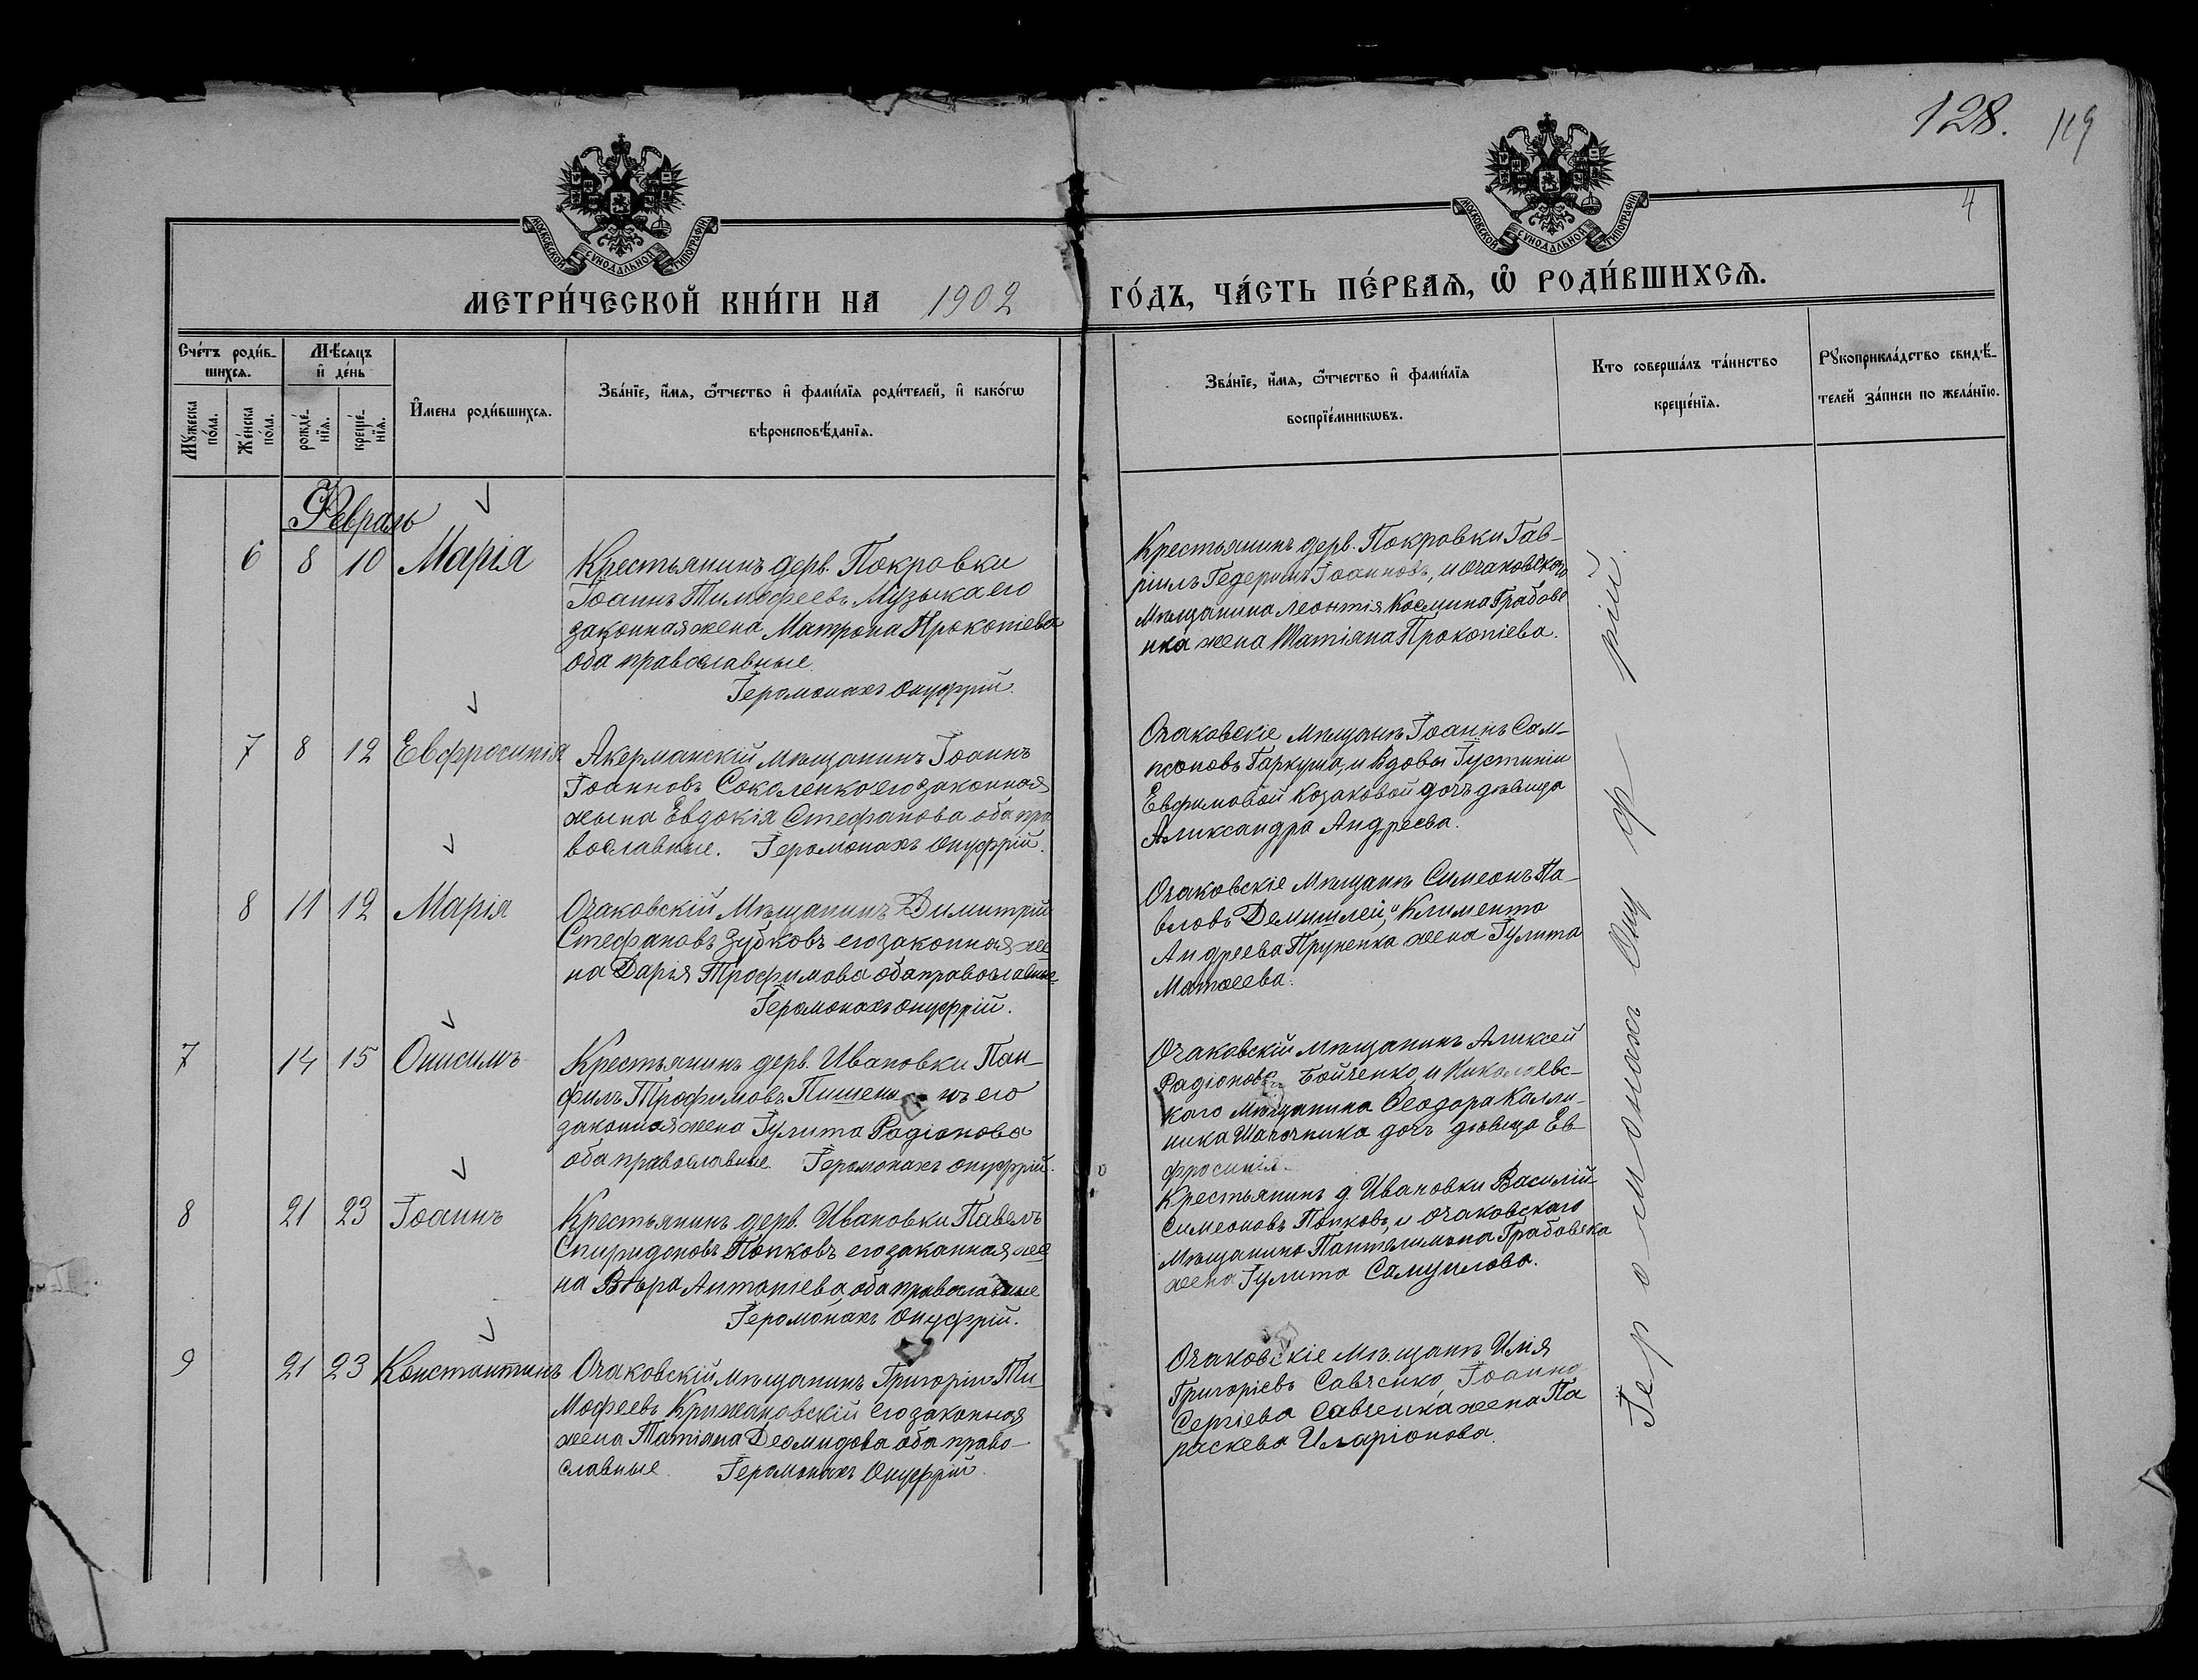 128. 119
4
МОСКОВСКОЙ СУНОДАЛЬНОЙ ТИПОГРАФІИ
МОСКОВСКОЙ СУНОДАЛЬНОЙ ТИПОГРАФІИ
МЕТРИ́ЧЕСКОЙ КНИ́ГИ НА 1902 ГО́ДЪ, ЧА́СТЬ ПЕ́РВАѦ, Ѽ РОДИ́ВШИХСѦ.
Сче́тъ роди́в-
шихсѧ.
Мꙋ́жеска по́ла.
Же́нска по́ла.
Мѣ́сѧцъ и҆ де́нь
рожде́-нїѧ.
креще́-нїѧ.
И҆мена роди́вшихсѧ.
Зва́нїе, и҆́мѧ, ѻ҆́тчество и҆ фами́лїѧ роди́телей, и҆ како́гѡ
вѣроисповѣ́данїѧ.
Зва́нїе, и҆́мѧ, ѻ҆́тчество и҆ фами́лїѧ
воспрїе́мникѡвъ.
Кто соверша́лъ та́инство
креще́нїѧ.
Рꙋкоприкла́дство свидѣ́-
телей за́писи по жела́нїю.
Февраль
6 8 10 Марія
Крестьянинъ дерв. Покровки
Іоаннъ Тимофеевъ Музыка его
законная жена Матрона Прокопіева
оба православные.
Іеромонахъ Онуфрій.
Крестьянинъ дерв. Покровки Гав-
ріилъ Іоанновъ, и очаковского
Мѣщанина Леонтія Космина Грабове
нка жена Татіана Прокопіева.
7 8 12 Евфросинія
Акерманскій мѣщанинъ Іоаннъ
Іоанновъ Соколенко его законная
жена Евдокія Стефанова оба пра
вославные. Іеромонахъ Онуфрій.
Очаковскіе мѣщанъ Іоаннъ Сам-
псоновъ Гаркуша, и вдовы Іустиніи
Евфимовой Козаковой дочь дѣвица
Александра Андреева.
8 11 12 Марія
Очаковскій Мѣщанинъ Димитрій
Стефановъ Зубковъ его законная же
на Дарія Трофимова оба православные.
Іеромонахъ Онуфрій.
Очаковскіе мѣщанъ Симеонъ Па-
вловъ Демишлей, и Климента
Андреева Пруненка жена Іулита
Матѳеева.
7 14 15 Онисимъ
Крестьянинъ дерв. Ивановки Пан-
филъ Трофимовъ его
законная жена Іулита Радіонова
оба православные. Іеромонахъ Онуфрій.
Очаковскій мѣщанинъ Алексей
Радіоновъ Бойченко, и Николаевс-
каго мѣщанина Ѳеодора Калли-
ника Шапочника дочь дѣвица Ев-
фросинія.
8 21 23 Іоаннъ
Крестьянинъ дерв. Ивановки Павелъ
Спиридоновъ Попковъ его законная же
на Вѣра Антоніева, оба православные
Іеромонахъ Онуфрій.
Крестьянинъ д. Ивановки Василій
Симеоновъ Попковъ, и очаковскаго
мѣщанина Пантелимона Грабовенка
жена Іулита Самуилова.
9 21 23 Константинъ
Очаковскій мѣщанинъ Григорій Ти-
мофеевъ Крижановскій его законная
жена Татіана Деомидова оба право-
славные. Іеромонахъ Онуфрій.
Очаковскіе мѣщанъ Илія
Григоріевъ Савченко, Іоанна
Сергіева Савченка жена Па
раскева Иларіонова.
Іеромонахъ Онуфрій.